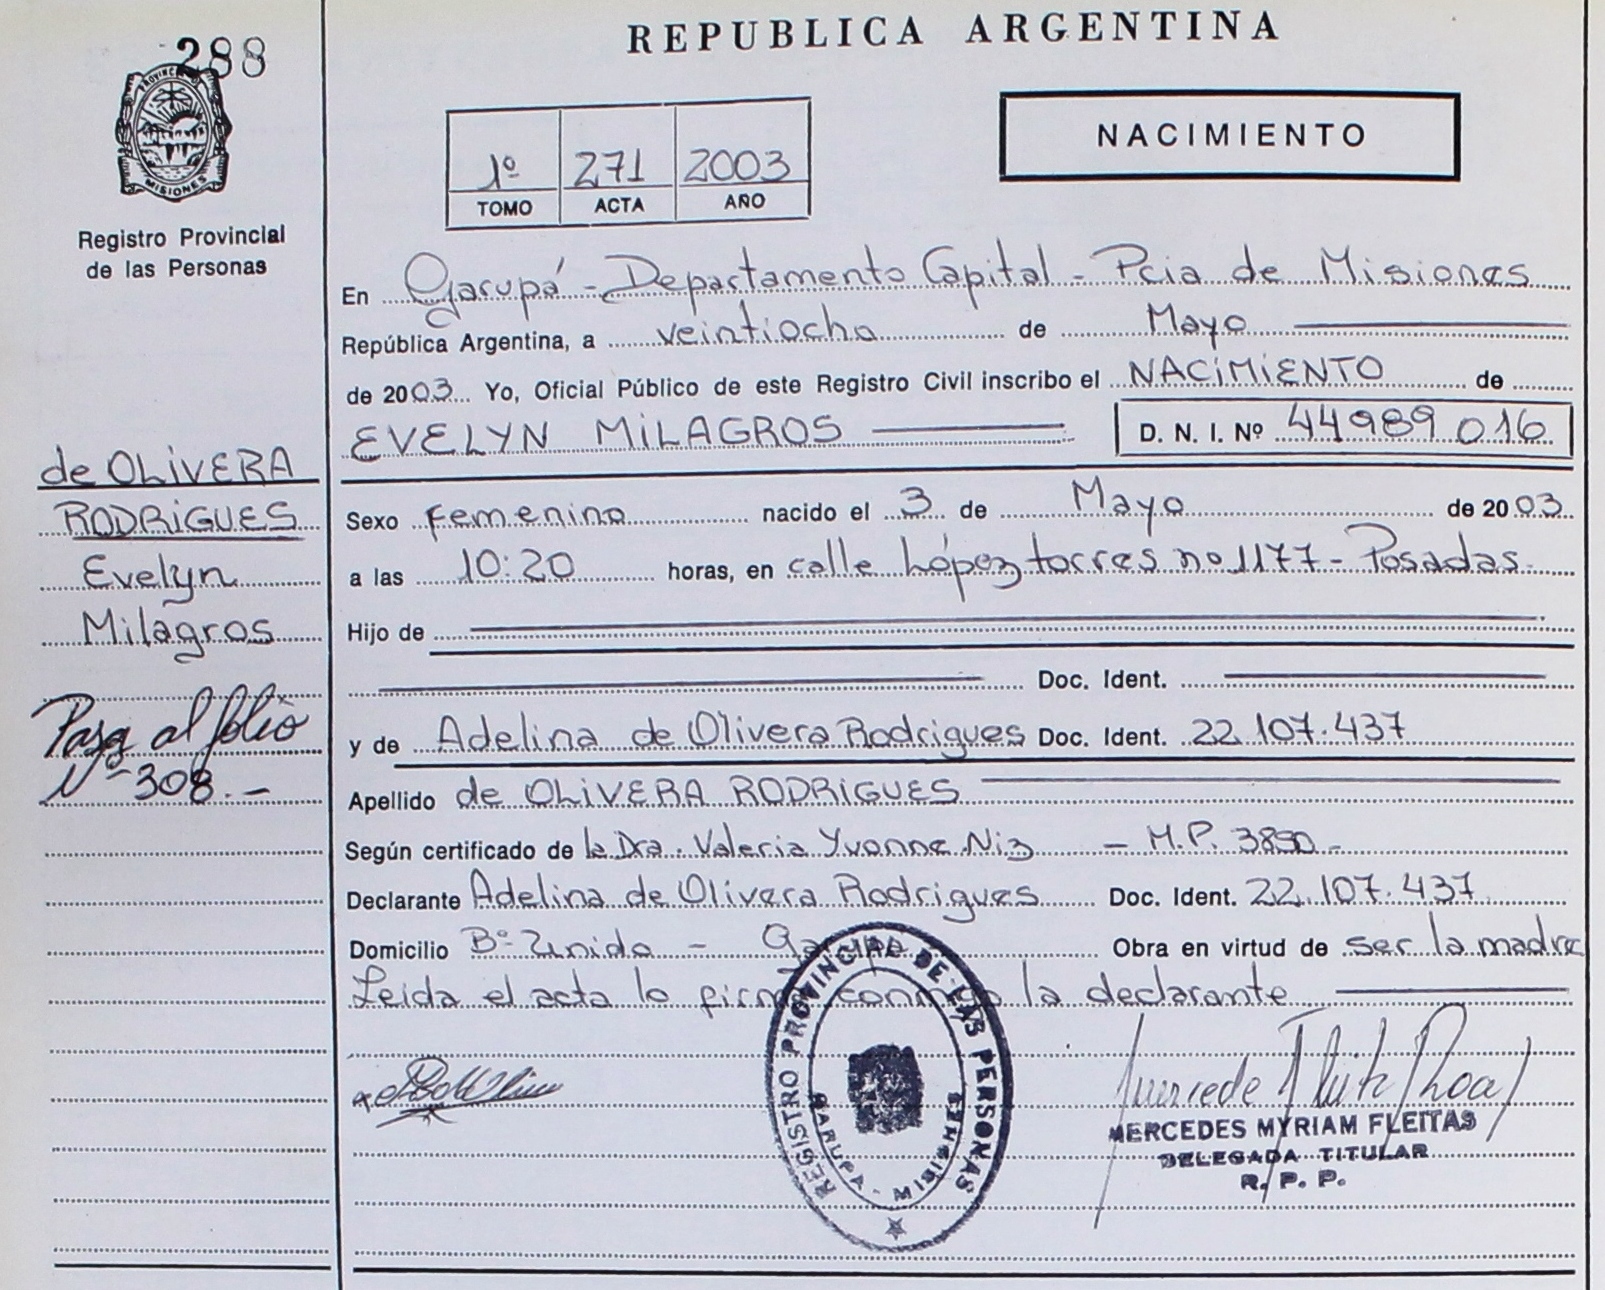 REPUBLICA ARGENTINA
288
PROVINCIA DE
MISIONES
Registro Provincial
de las Personas
1º 271 2003
TOMO ACTA AÑO
NACIMIENTO
En Garupá - Departamento Capital - Pcia de Misiones
República Argentina, a veintiocho de Mayo
de 2003 Yo, Oficial Público de este Registro Civil inscribo el NACIMIENTO de
EVELYN MILAGROS D. N. I. Nº 44989016
de OLIVERA
RODRIGUES
Evelyn
Milagros
Pasa al folio
Nº 308.-
Sexo femenino nacido el 3 de Mayo de 2003
a las 10:20 horas, en calle López torres nº 1177 - Posadas.
Hijo de
Doc. Ident.
y de Adelina de Olivera Rodrigues Doc. Ident. 22.107.437
Apellido de OLIVERA RODRIGUES
Según certificado de la Dra. Valeria Yvonne Niz - M.P. 3890 -
Declarante Adelina de Olivera Rodrigues Doc. Ident. 22.107.437
Domicilio Bº Unido - Garupá Obra en virtud de ser la madre
Leida el acta lo firma conmigo la declarante
REGISTRO PROVINCIAL DE LAS PERSONAS
GARUPA - MISIONES
MERCEDES MYRIAM FLEITAS
DELEGADA TITULAR
R. P. P.